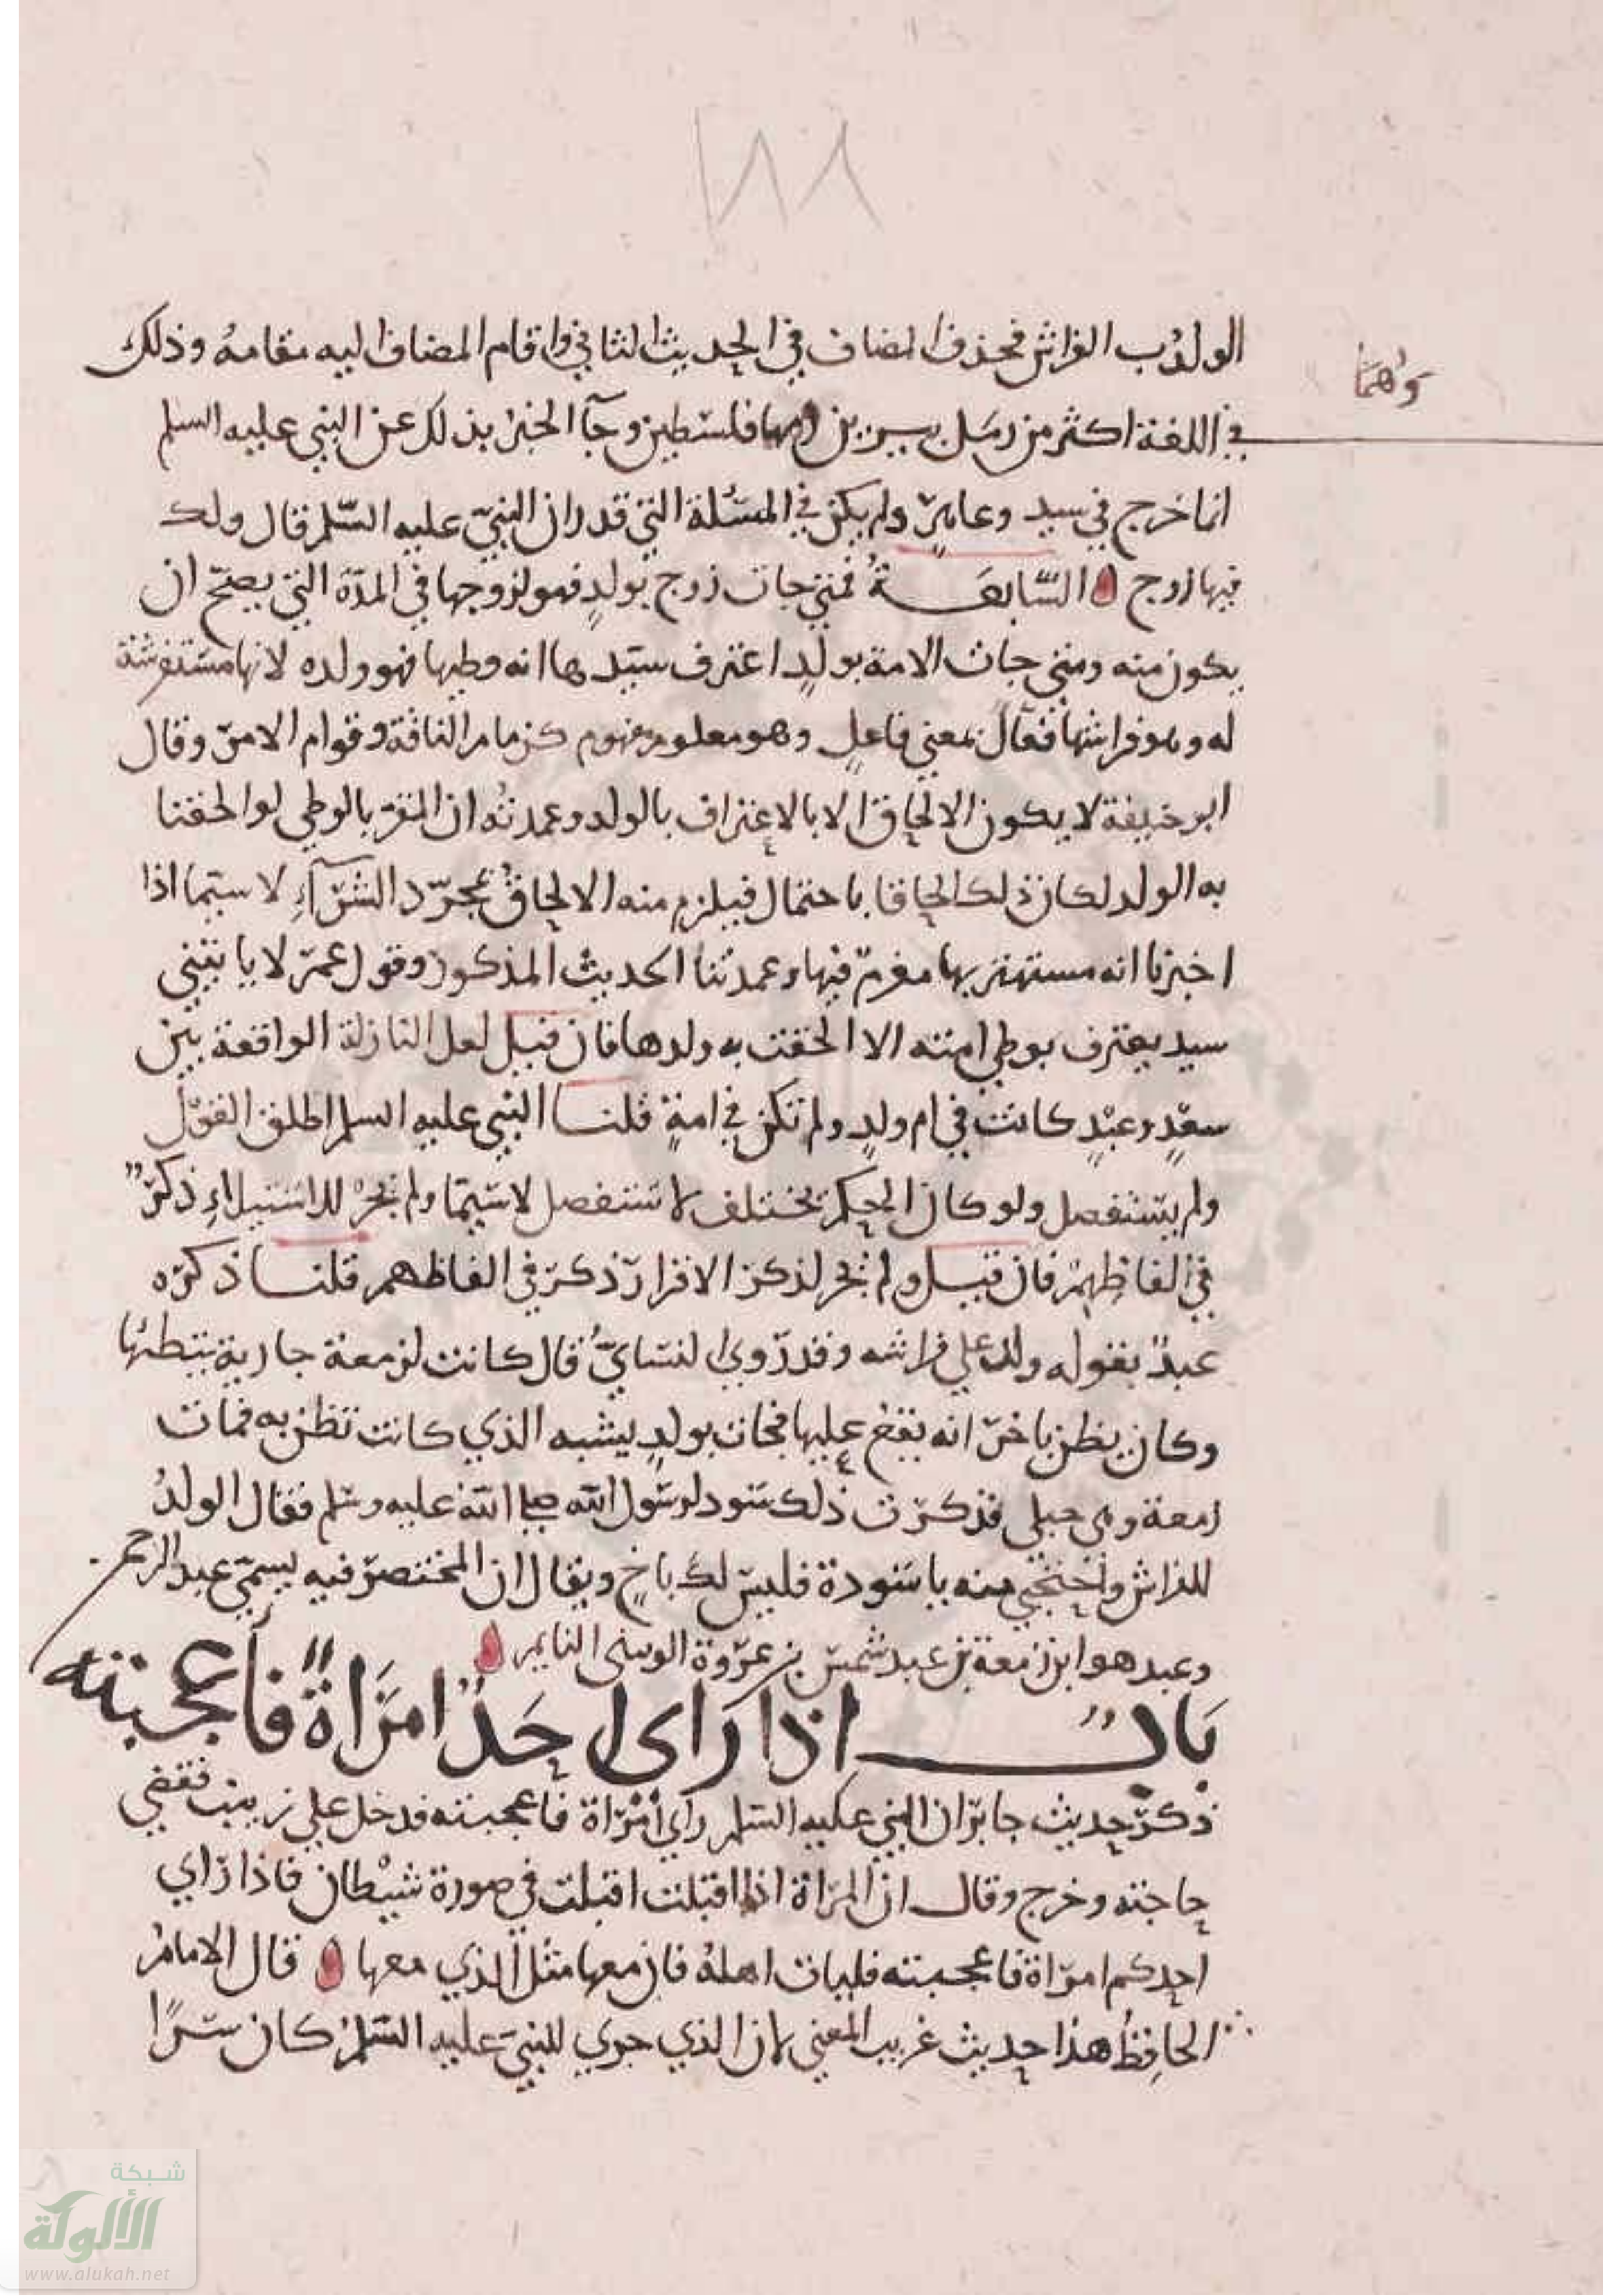 ١٨٨
الولدُ ب الفراش فحذف المضاف في الحديث الثاني واقام المضاف اليه مقامهُ وذلك
وهما
في اللغة اكثر من رمل يبرين فلسطين وجآ الخبر بذلك عن النبي عليه السلم
انما خرج في سيد وعامرٍ ولم يكن في المسئلة التي قدر ان النبيّ عليه السّلم قال ولك
فيها زوج السّابعَـــةُ فمتي جات زوج بولدٍ فهو لزوجها في المدّة التي يصحّ ان
يكون منه ومتي جات الامة بولدٍ اعترف سيّدها انه وطيها فهو ولده لانها مستفرشة
له وهو فراشها فعَالٌ بمعني فاعلٍ وهو معلوم مفهوم كزمام الناقة وقوام الامر وقال
ابو حنيفة لا يكون الالحاق الا بالاعتراف بالولد وعمدتُه ان المقرّ بالوطي لو الحقنا
به الولد لكان ذلك الحاقا باحتمال فيلزم منه الالحاقُ بمجرّد الشّرآءِ لا سيّما اذا
اخبرنا انه مستهتر بها مغرمٌ فيها وعمدتنا الحديث المذكور وقول عمرَ لا ياتيني
سيد يعترف بوطي امته الا الحقت به ولدها فان قيل لعل النازلة الواقعة بين
سعْدٍ وعبْدٍ كانت في ام ولدٍ ولم تكن في امةٍ قلنـــا النبي عليه السلم اطلق القوْل
ولم يستفصل ولو كان الحكم يختلف لاستفصل لاسيّما ولم يجْر للاستيلاءِ ذكرٌ
في الفاظِهِمْ فان قيل ولم يجر لذكر الاقرار ذكر في الفاظهم قلنـــا ذكره
عبدٌ بقوله ولد علي فراشه وقد رَوي النسايّ قال كانت لزمعة جارية يتطئها
وكان يظن باخر انه يقع عليها فجات بولدٍ يشبه الذي كانت تظن به فمات
زمعة وهي حبلي فذكرت ذلك سَود لرسُول الله صلي الله عليه وسلم فقال الولدُ
للفراش واحتجبي منه يا سَودة فليس لك باخٍ ويقال ان المختصر فيه يسمّي عبد الرحمن
وعبد هو ابن زمعة بن عبد شمس بن عروة
بَابٌ اذا رَاي احَدٌ امرَاةً فأعجبته
ذكر حديث جابر ان النبي عليه السلم رأي امْرَاة فاعجبته فدخل علي زينب فقضي
حاجته وخرج وقال ان المرَاة اذا اقبلت اقبلت في صورة شيْطان فاذا رَاي
احدكم امرَاة فاعجبته فليات اهلهُ فان معها مثْل الذي معها قال الامامُ
الحافِظُ هذا حديث غريب المعني لان الذي جري للنبيّ عليه السّلمُ كان سرًا
شبكة
الألوكة
www.alukah.net